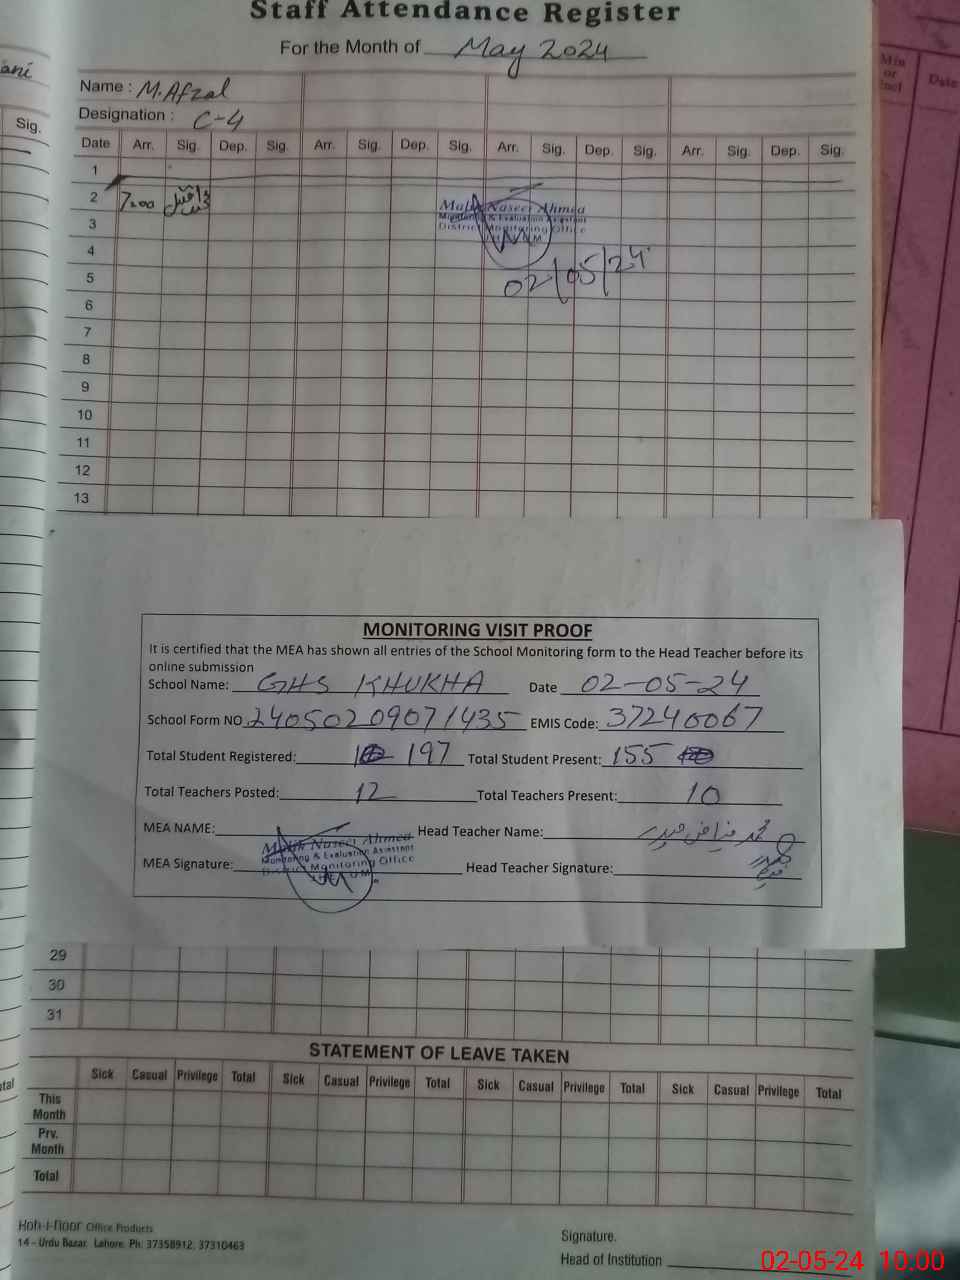 Staff Attendance Register
For the Month of May 2024
ani
Sig.
Min
or
Date
Name : M.Afzal
Designation : C-4
Date Arr. Sig. Dep. Sig. Arr. Sig. Dep. Sig. Arr. Sig. Dep. Sig. Arr. Sig. Dep. Sig.
1
2 7:00
Malik Naseer Ahmed
Monitoring & Evaluation Assistant
District Monitoring Office
3
4
02/05/24
5
6
7
8
9
10
11
12
13
MONITORING VISIT PROOF
It is certified that the MEA has shown all entries of the School Monitoring form to the Head Teacher before its
online submission
School Name: GHS KHUKHA Date 02-05-24
School Form NO 24050209071435 EMIS Code: 37240067
Total Student Registered: 197 Total Student Present: 155
Total Teachers Posted: 12 Total Teachers Present: 10
MEA NAME: Head Teacher Name: محمد
Malik Naseer Ahmed
Monitoring & Evaluation Assistant
District Monitoring Office
MEA Signature: Head Teacher Signature:
29
30
31
STATEMENT OF LEAVE TAKEN
Sick Casual Privilege Total Sick Casual Privilege Total Sick Casual Privilege Total Sick Casual Privilege Total
This
Month
Prv.
Month
Total
Koh-i-noor Office Products
14 - Urdu Bazar, Lahore. Ph: 37358912, 37310463
Signature.
Head of Institution
02-05-24 10:00